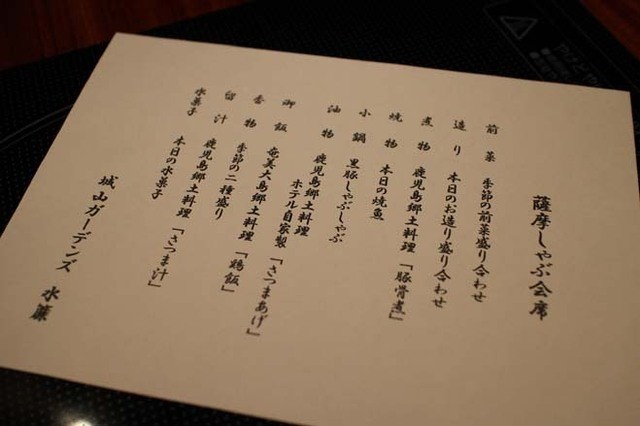 薩摩しゃぶ会席
前菜 季節の前菜盛り合わせ
造り 本日のお造り盛り合わせ
煮物 鹿児島郷土料理「豚骨煮」
焼物 本日の焼魚
小鍋 黒豚しゃぶしゃぶ
油物 鹿児島郷土料理
ホテル自家製「さつまあげ」
御飯 奄美大島郷土料理「鶏飯」
香物 季節の二種盛り
留汁 鹿児島郷土料理「さつま汁」
水菓子 本日の水菓子
城山ガーデンズ 水簾